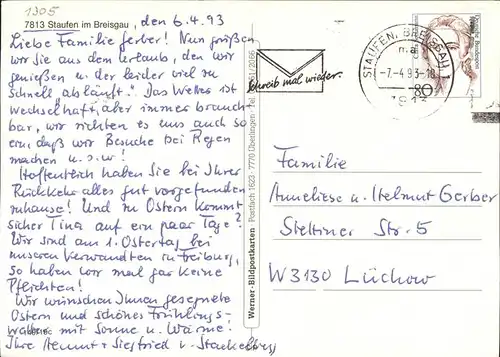 1305
7813 Staufen im Breisgau, den 6.4.93
Liebe Familie Gerber! Nun grüßen
wir Sie aus dem Urlaub, den wir
genießen u. der leider viel zu
schnell abläuft." Das Wetter ist
wechselhaft, aber immer brauch-
bar, wir richten es uns auch so
ein, daß wir Besuche bei Regen
machen u.s.w!
Hoffentlich haben Sie bei Ihrer
Rückkehr alles gut vorgefunden
zuhause! Und zu Ostern kommt
sicher Tina auf ein paar Tage?
Wir sind am 1. Ostertag bei
unseren Verwandten in Freiburg,
so haben wir mal gar keine
Pflichten!
Wir wünschen Ihnen gesegnete
Ostern und schönes Frühlings-
wetter mit Sonne u. Wärme!
Ihre Siegfried v. Stackelberg
Werner-Bildpostkarten Postfach 1623 7770 Überlingen Tel.
Schreib mal wieder.
STAUFEN, BREISGAU 1
-7.-4.93-18
7813
80
Familie
Anneliese u. Helmut Gerber
Stettiner Str. 5
W3130 Lüchow